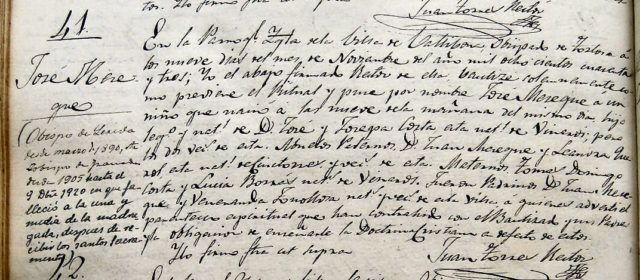 tos. Yo firmo fha et supra
Juan Torner Retor
41.
José Mese
guer
Obispo de Lerida
desde marzo de 1890, Ar
zobispo de Granada
desde 1905 hasta el
9 Dbre 1920 en que fa
lleció a la una y
media de la madru
gada, después de re
cibir los santos sacra
mentos
En la Parroql Ygla de la Villa de Vallibona, Obispado de Tortosa á
los nueve dias del mes de Noviembre del año mil ocho cientos cuarenta
y tres; Yo el abajo firmado Retor de ella bautizé solemnemente co
mo previene el Ritual y puse por nombre José Meseguer a un
niño que nació a las nueve de la mañana del mismo dia, hijo
legmo y natl de D. José y Josepa Costa esta natl de Vinaros, pero
los dos vecs de esta Abuelos Paternos D. Juan Meseguer y Leandra
nats de esta Maternos Domingo
Costa y Lucia Borrás nats de Vinaros. Fueron Padrinos D. Juan Mese
guer y Veneranda Fonollosa nats y vecs de esta villa, a quienes adverti el
parentesco espiritual que han contrahido con el Bautizado y sus Padres
y la obligacion de enseñarle la Doctrina Cristiana a defecto de estos.
Yo firmo fha et supra
Juan Torner Retor
42.